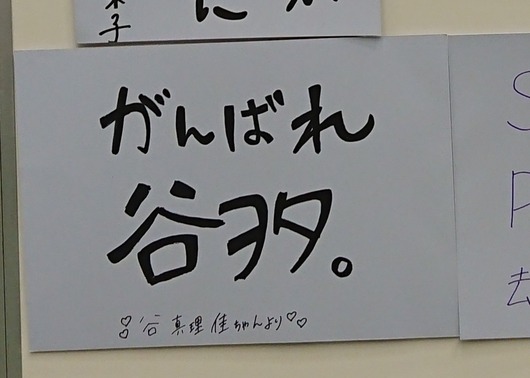 子
に
がんばれ
谷ヲタ。
♡♡谷 真理佳ちゃんより♡♡
S
P